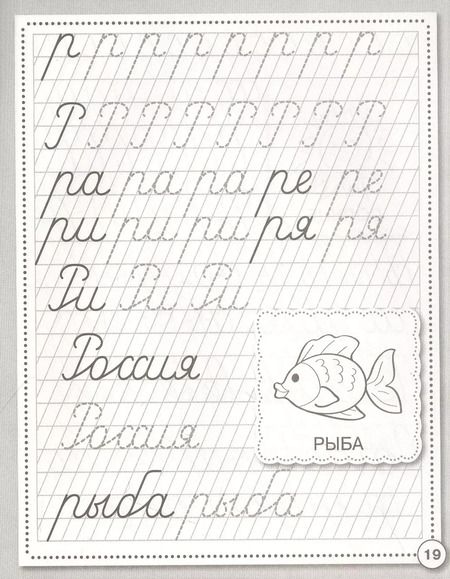 р р р р р р р р
Р Р Р Р Р Р Р Р
ра ра ра ре ре
ри ри ри ря ря
Ри Ри Ри
Россия
Россия
РЫБА
рыба рыба
19